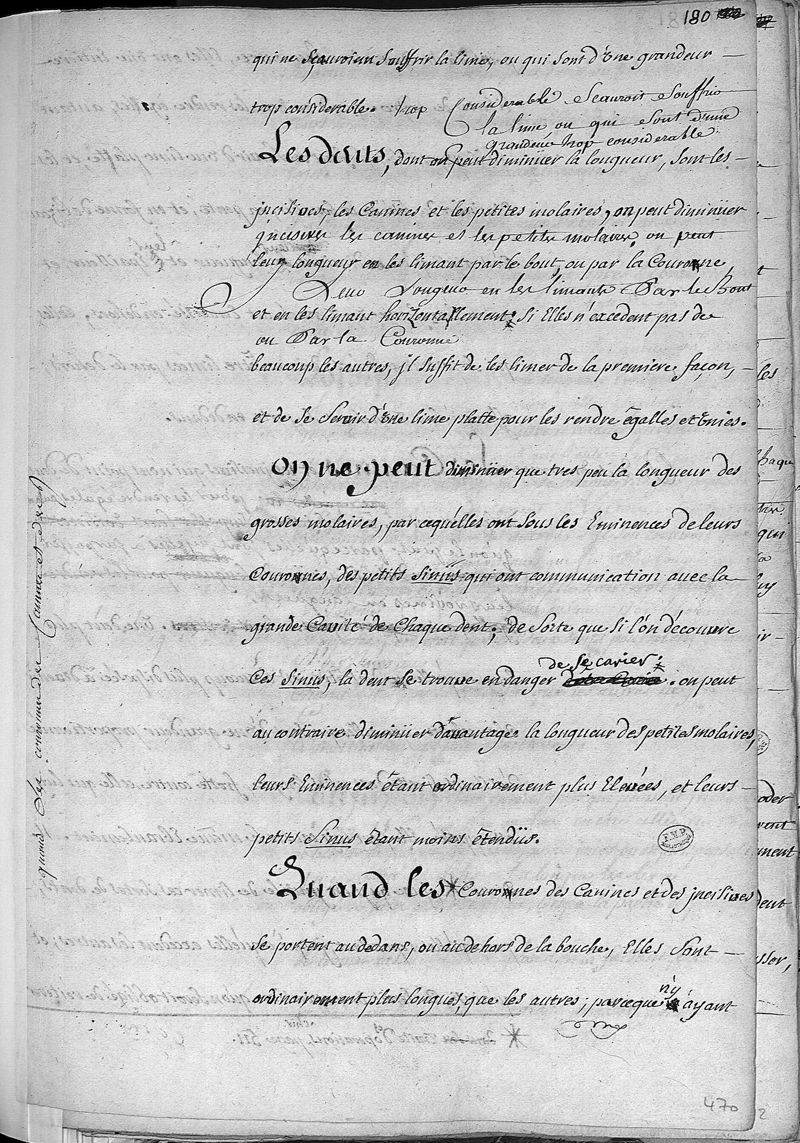 180
qui ne sçauroient souffrir la lime, ou qui sont d'vne grandeur
trop considerable. trop Considerable Sçauroit Souffrir
la lime ou qui sont d'une
grandeur trop considerable.
Les dents, dont on peut diminüer la longueur, sont les
jncisives, les Canines et les petites molaires, on peut diminüer
jncisives les canines et les petites molaires, on peut
leur longueur en les limant par le bout, ou par la Couronne,
Leur Longueur en les limants Par le Bout
et en les limant horizontallement: si Elles n'excedent pas de
ou Par la Couronne
beaucoup les autres, jl suffit de les limer de la premiere façon,
et de se servir d'vne lime platte pour les rendre égalles et vnies.
On ne peut diminüer que tres peu la longueur des
grosses molaires, par cequ'elles ont sous les Eminences de leurs
Couronnes, des petits sinüs qui ont communication avec la
grande Cavité de Chaque dent; de sorte que si l'on découvre
ces sinüs, la dent se trouve en danger de se carier. on peut
au contraire diminüer d'avantage la longueur des petites molaires,
leurs Eminences étant ordinairement plus Elevées, et leurs
petits Sinus étant moins étendüs.
Quand les Couronnes des Canines et des jncisives
se portent au dedans, ou au dehors de la bouche, Elles sont
ordinairement plus longues, que les autres; parceque n'y ayant
quand les couronnes des Canines et des
470